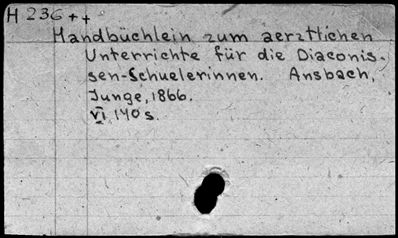 H 236++
Handbüchlein zum aerztlichen
Unterrichte für die Diaconis-
sen-Schuelerinnen. Ansbach,
Junge, 1866.
VI 140 s.